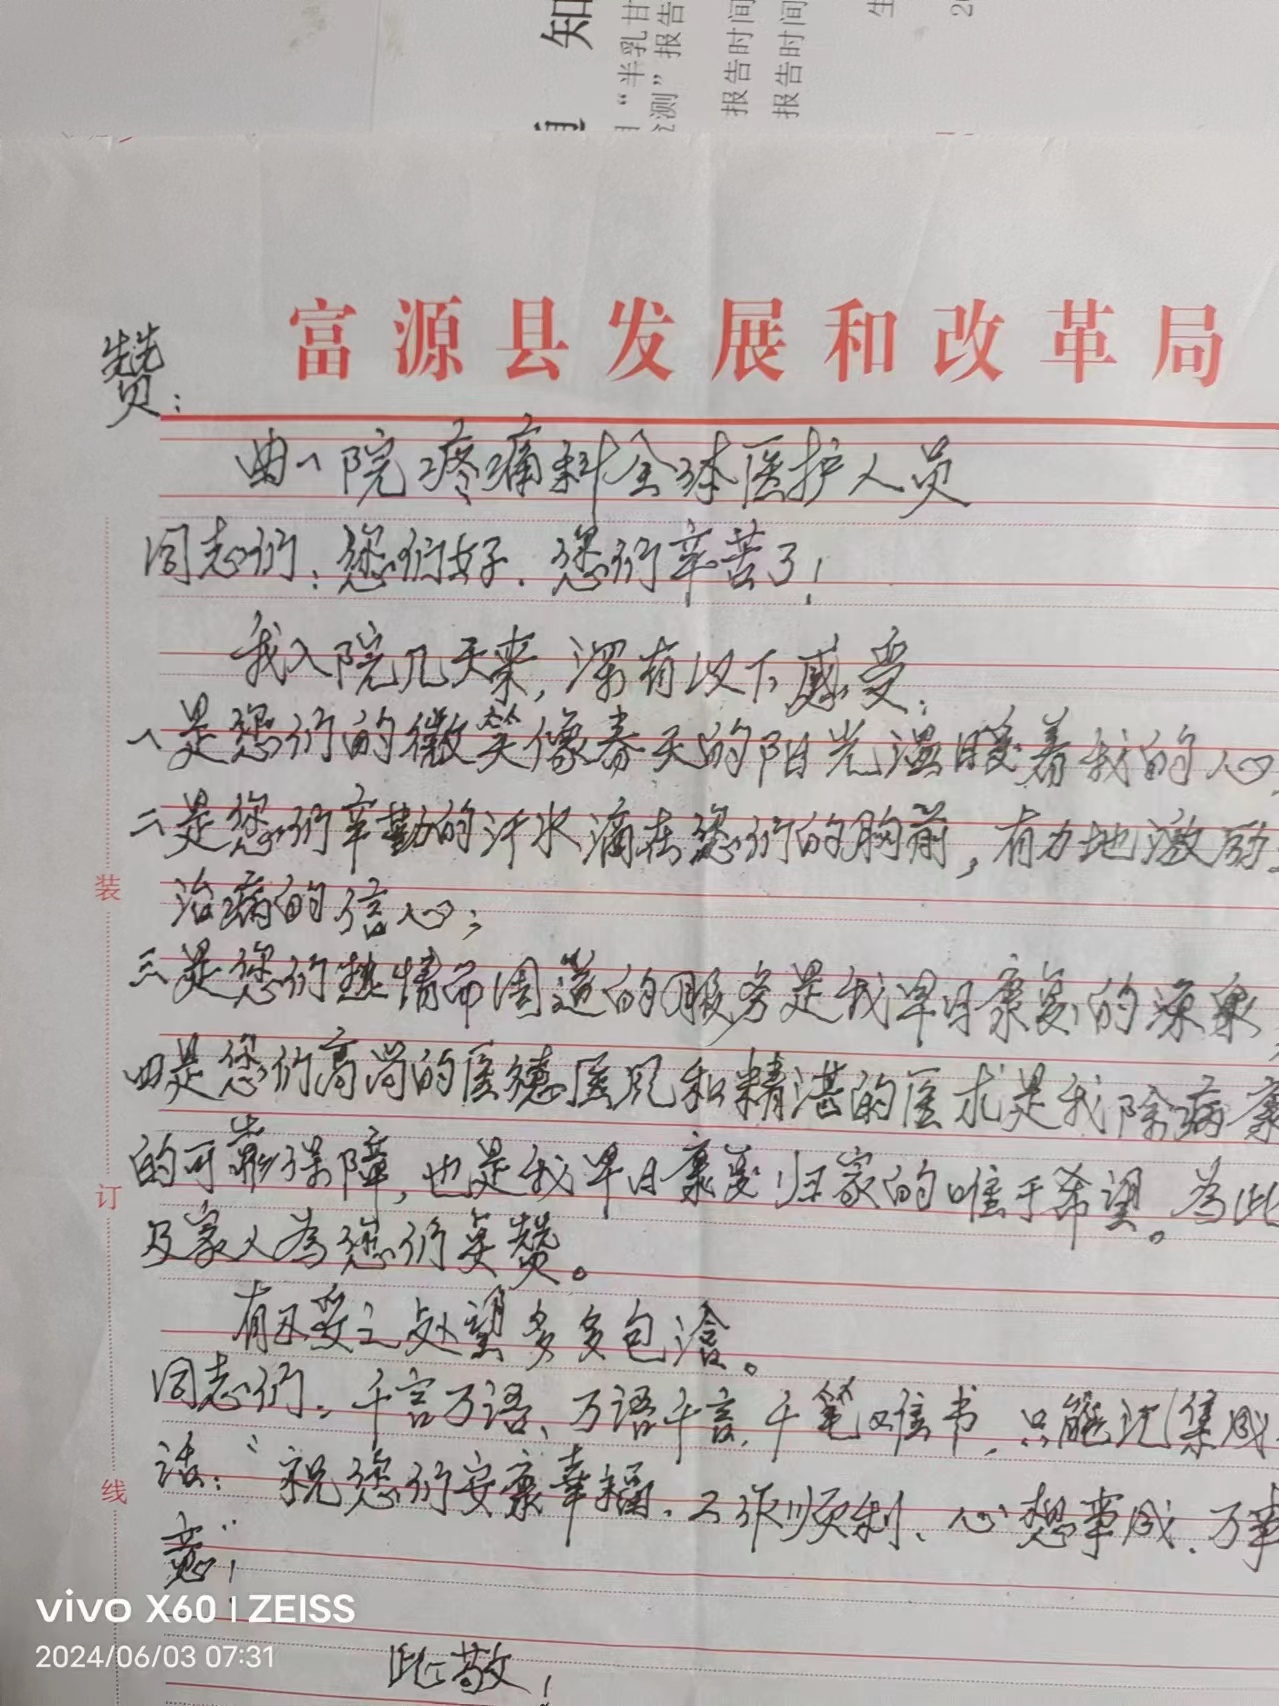 知
“半乳甘
测”报告
报告时间
报告时间
生
富源县发展和改革局
赞:
曲一院疼痛科全体医护人员
同志们:您们好.您们辛苦了!
我入院几天来,深有以下感受:
一是您们的微笑像春天的阳光温暖着我的心,
二是您们辛勤的汗水滴在您们的胸前,有力地激励
治病的信心;
三是您们热情而周道的服务是我早日康复的源泉,
四是您们高尚的医德医风和精湛的医术是我除病康
的可靠保障,也是我早日康复归家的唯于希望。为此
及家人为您们点赞。
有不妥之处望多多包涵。
同志们,千言万语、万语千言,千笔难书,只能汇集成
话:“祝您们安康幸福.工作顺利、心想事成.万事
意”!
此敬!
装
订
线
vivo X60 | ZEISS
2024/06/03 07:31